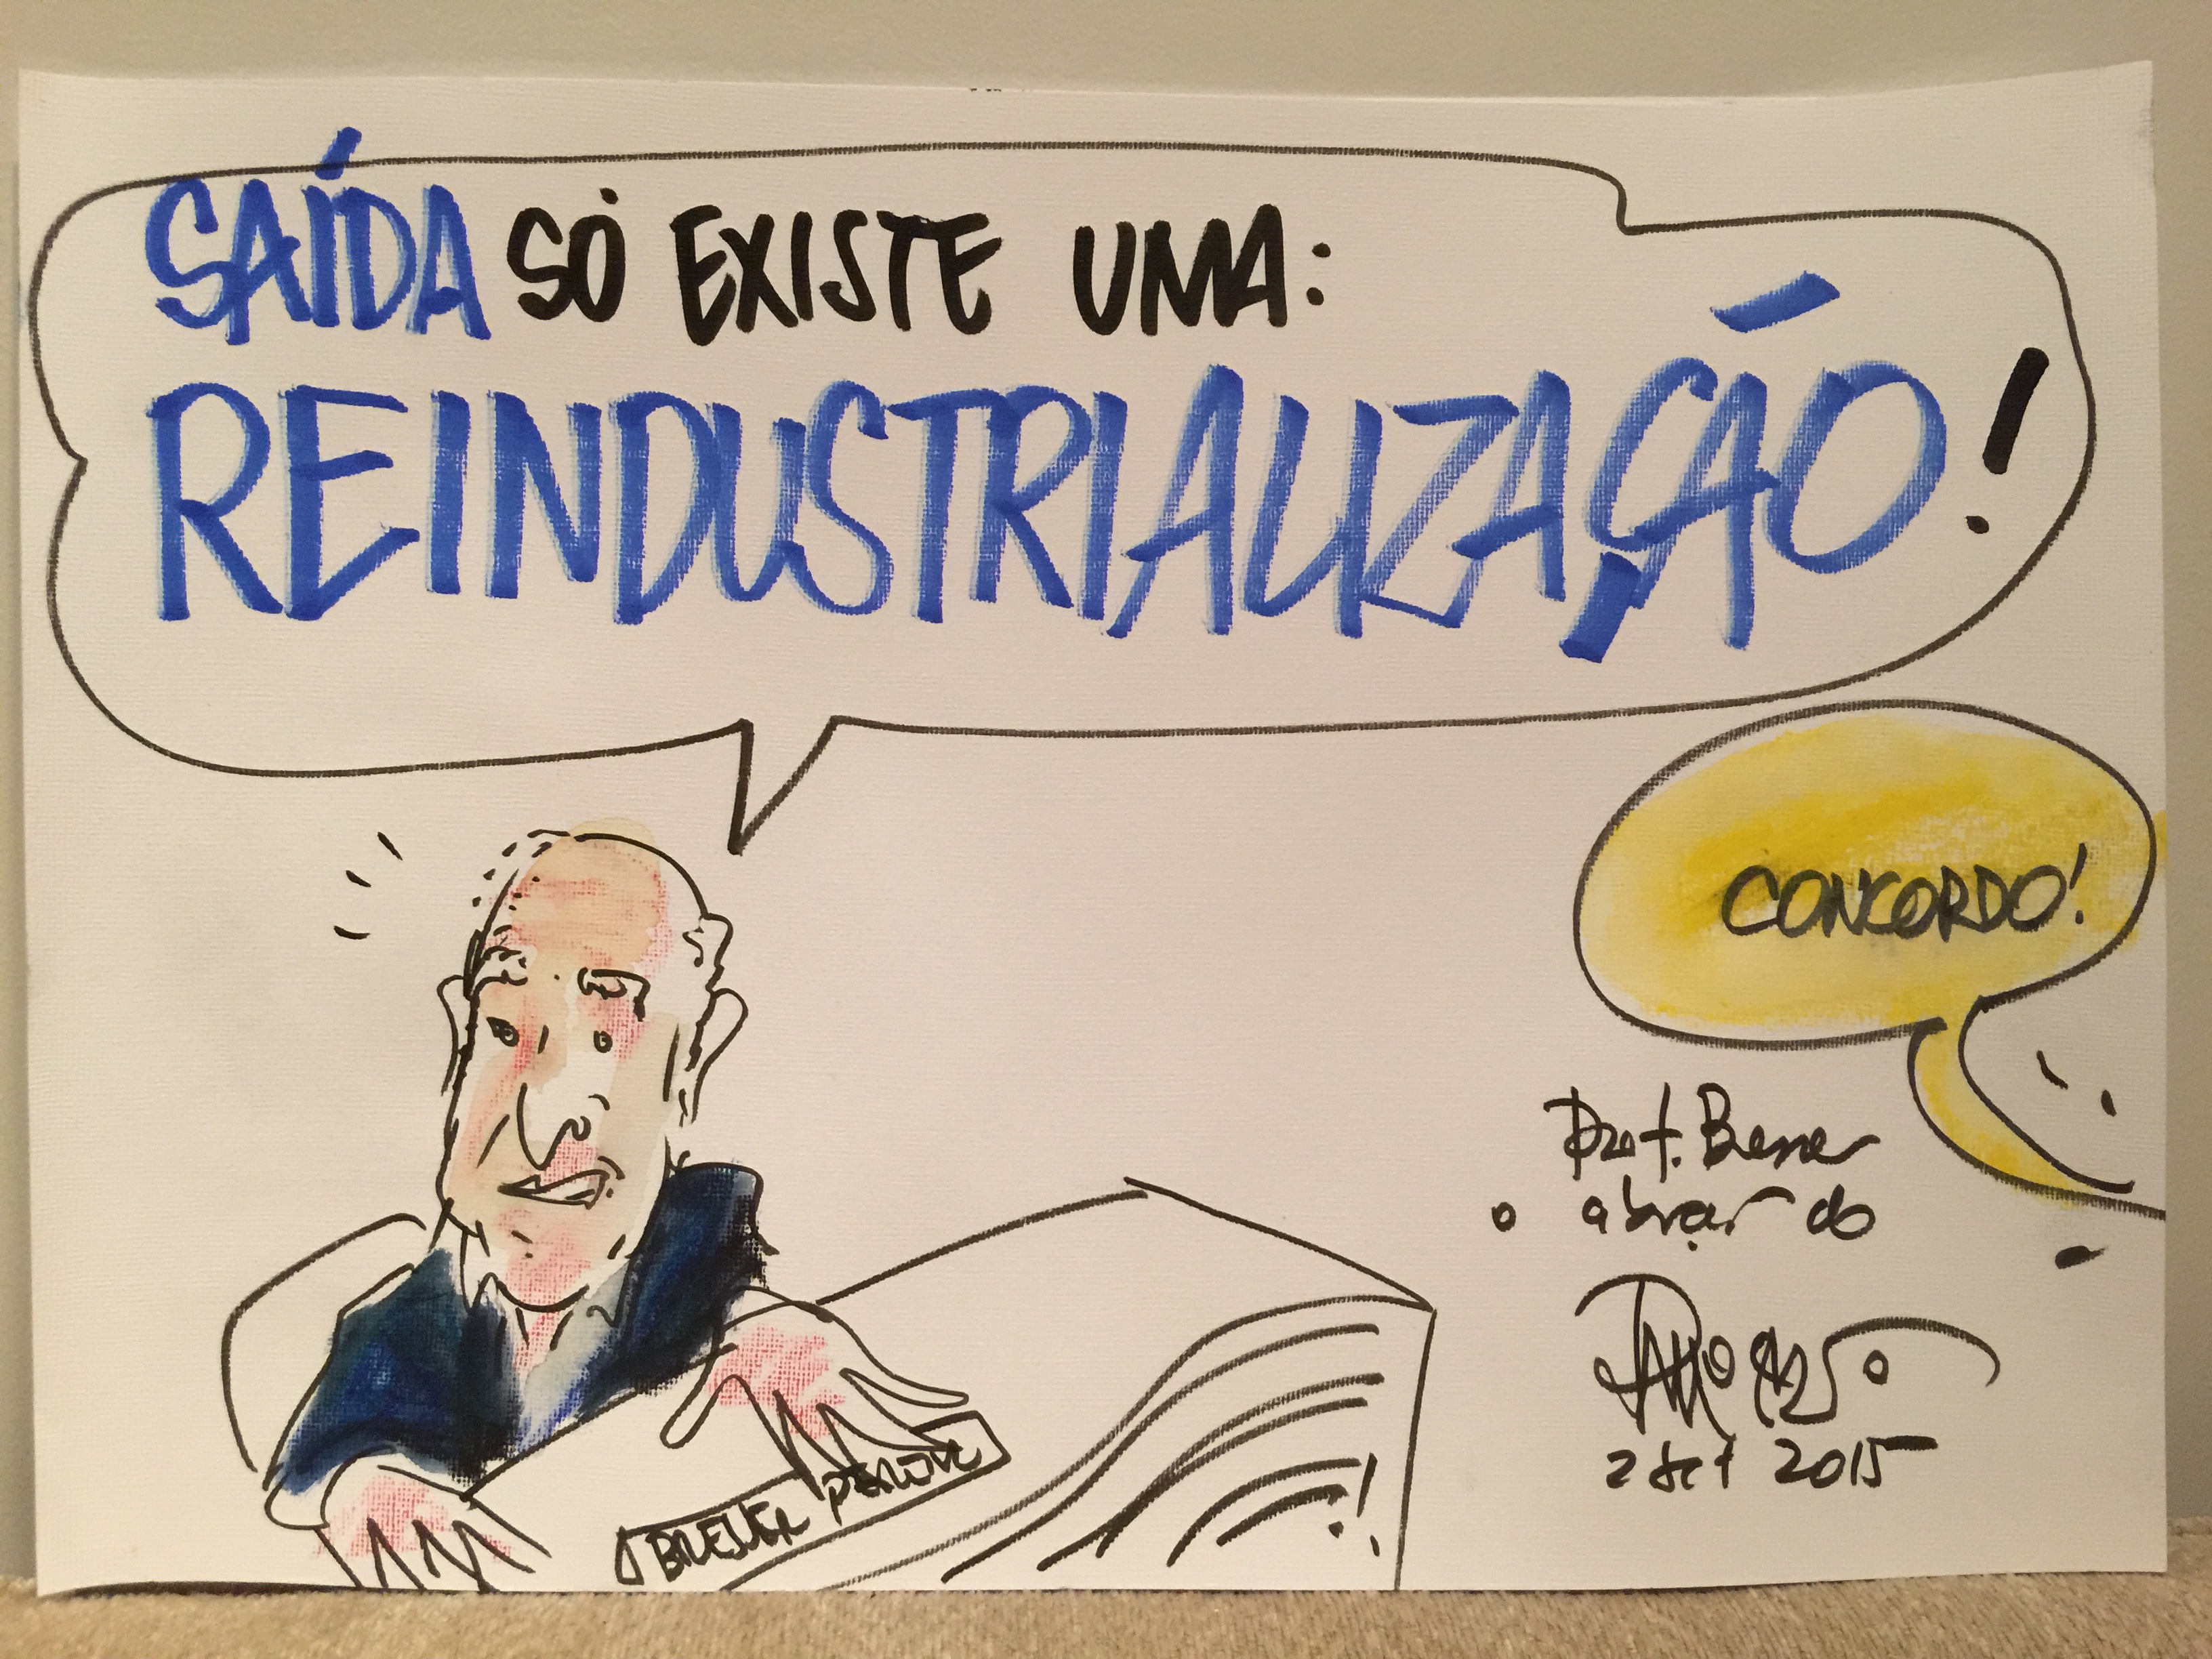 SAÍDA SÓ EXISTE UMA:
REINDUSTRIALIZAÇÃO!
CONCORDO!
Prof. Bresser
o abraço do
2 set 2015
BRESSER PEREIRA
!